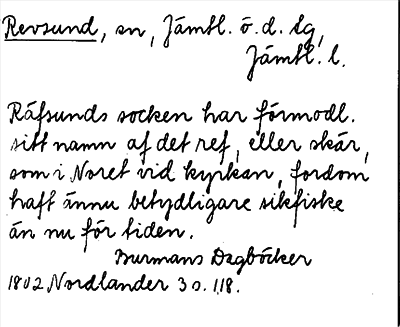 Revsund, sn, Jämtl. ö. d. tg,
Jämtl. l.
Räfsunds socken har förmodl.
sitt namn af det ref, eller skär,
som i Noret vid kyrkan, fordom
haft ännu betydligare sikfiske
än nu för tiden.
Burmans Dagböcker
1802 Nordlander 3 o. 118.